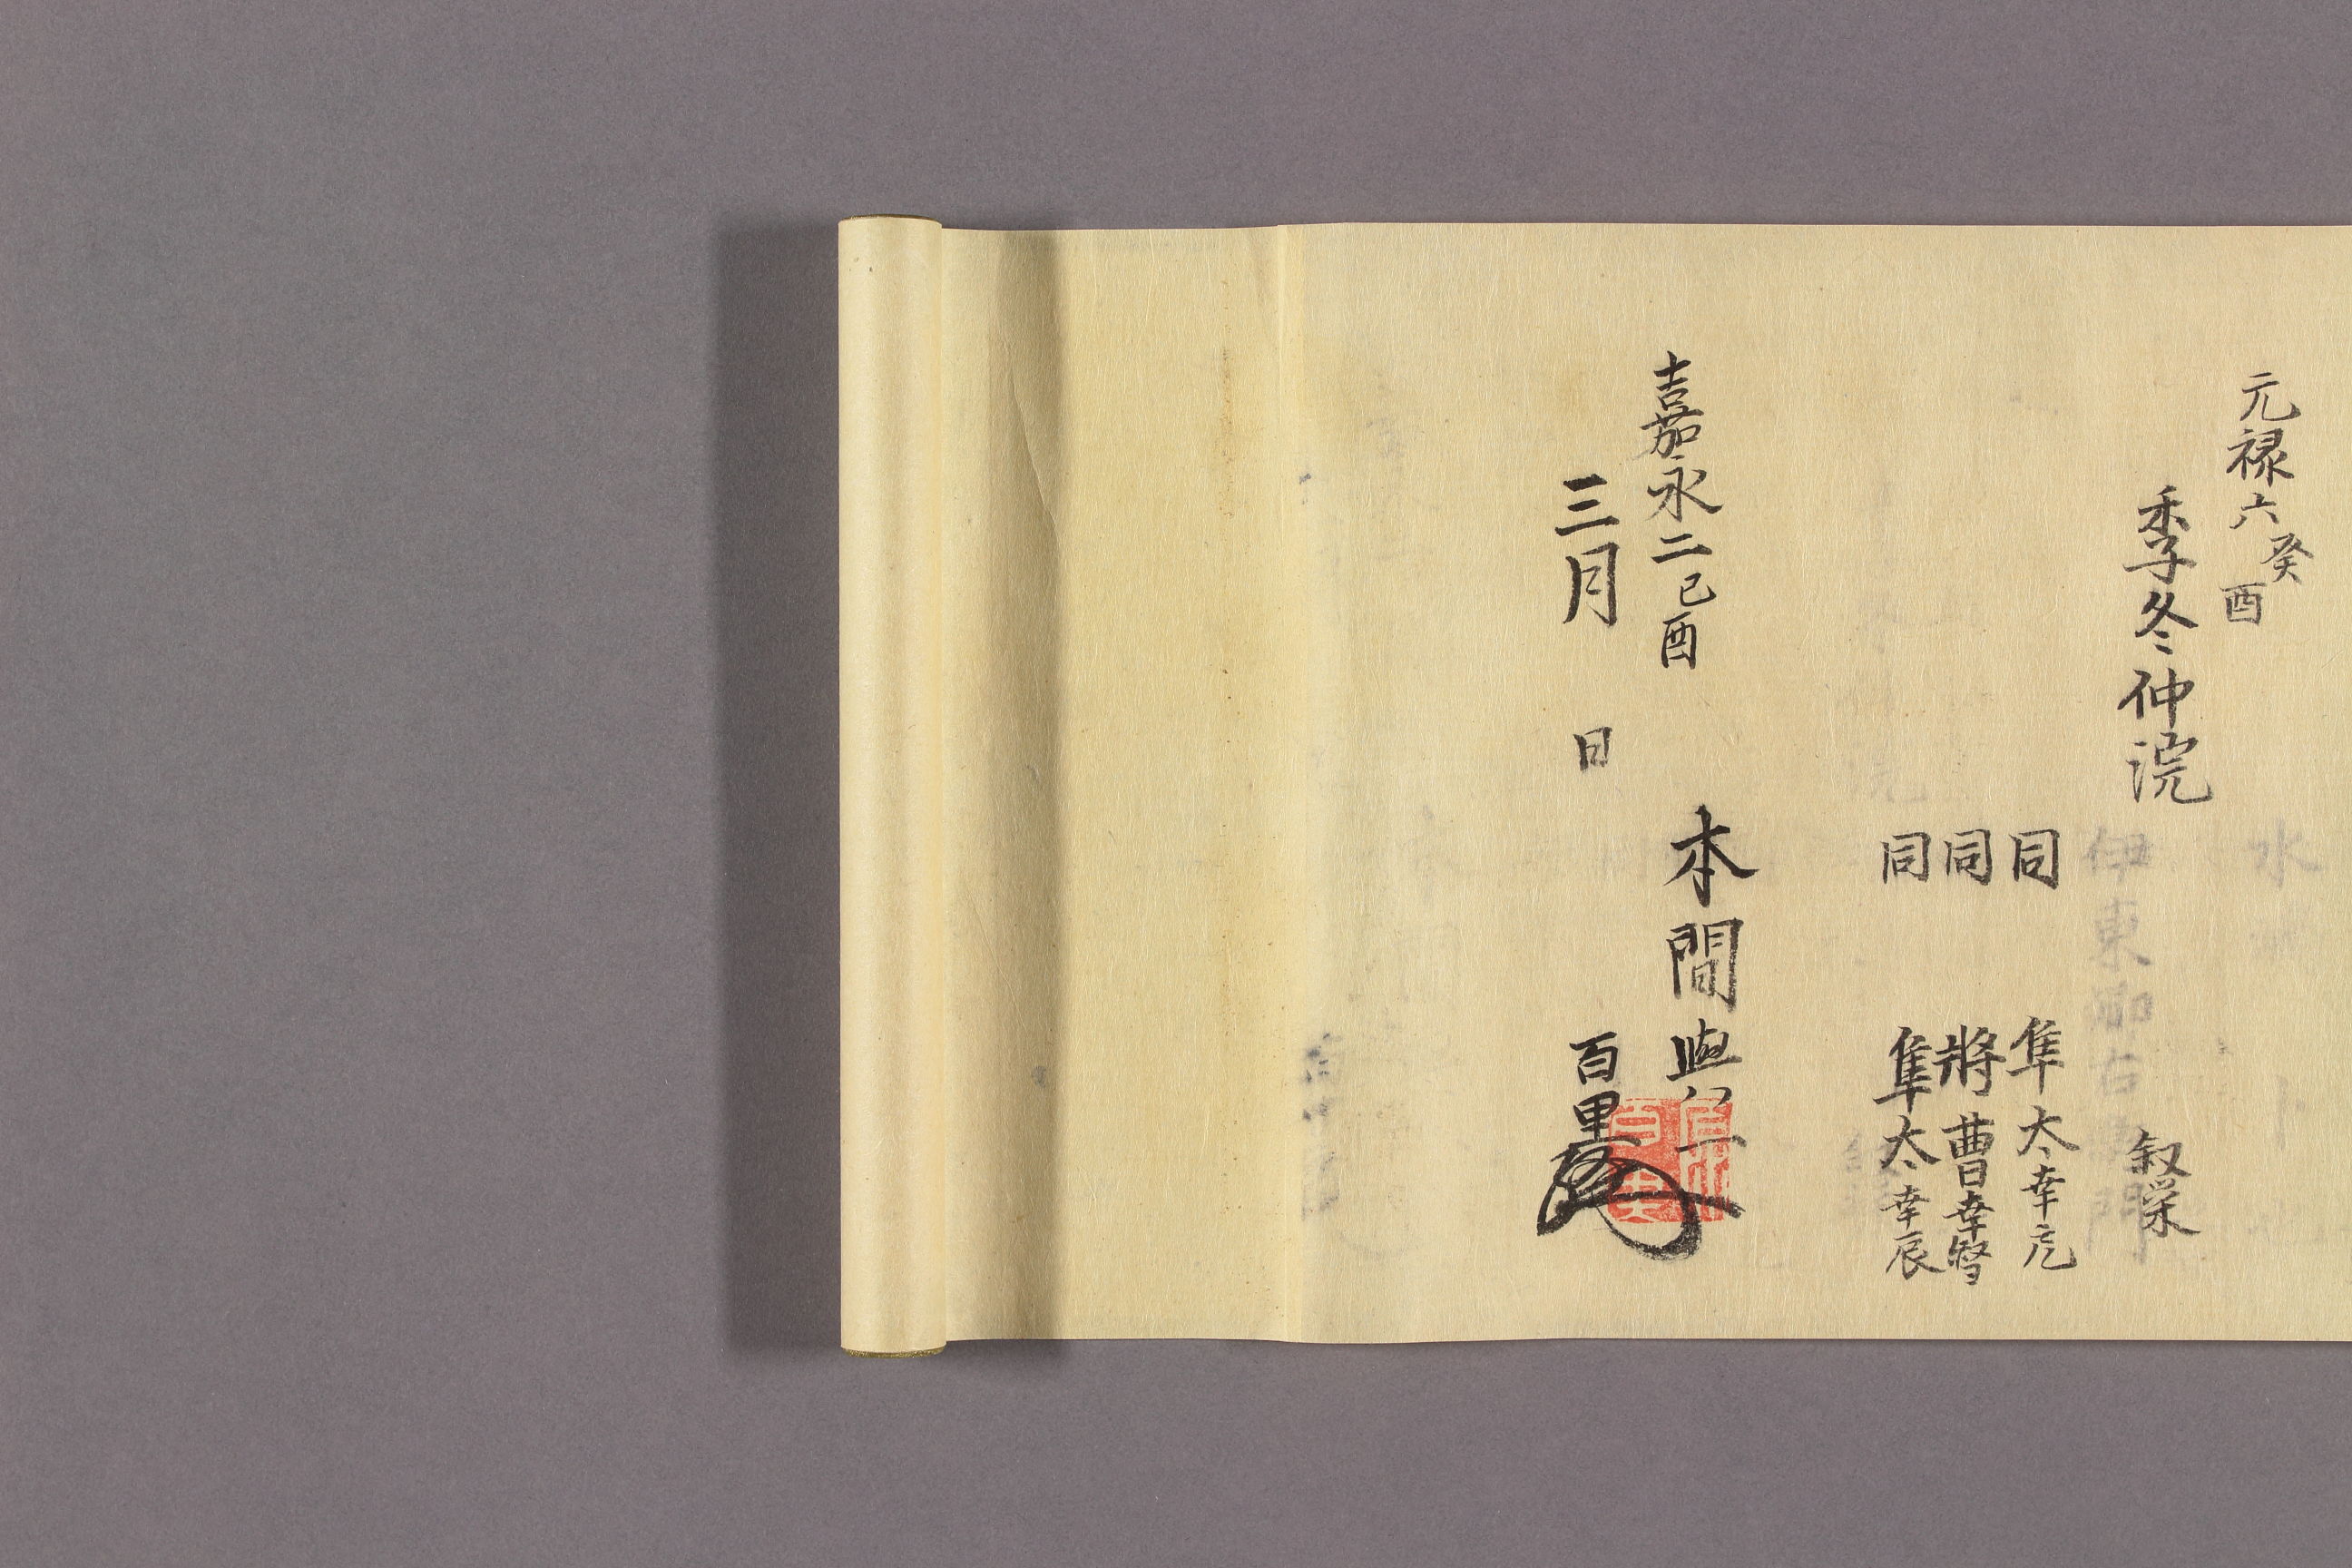 元禄六癸酉
季冬仲浣
叙栄
同 隼太幸元
同 將曹幸
同 隼太幸辰
嘉永二己酉
三月 日
本間與
百里